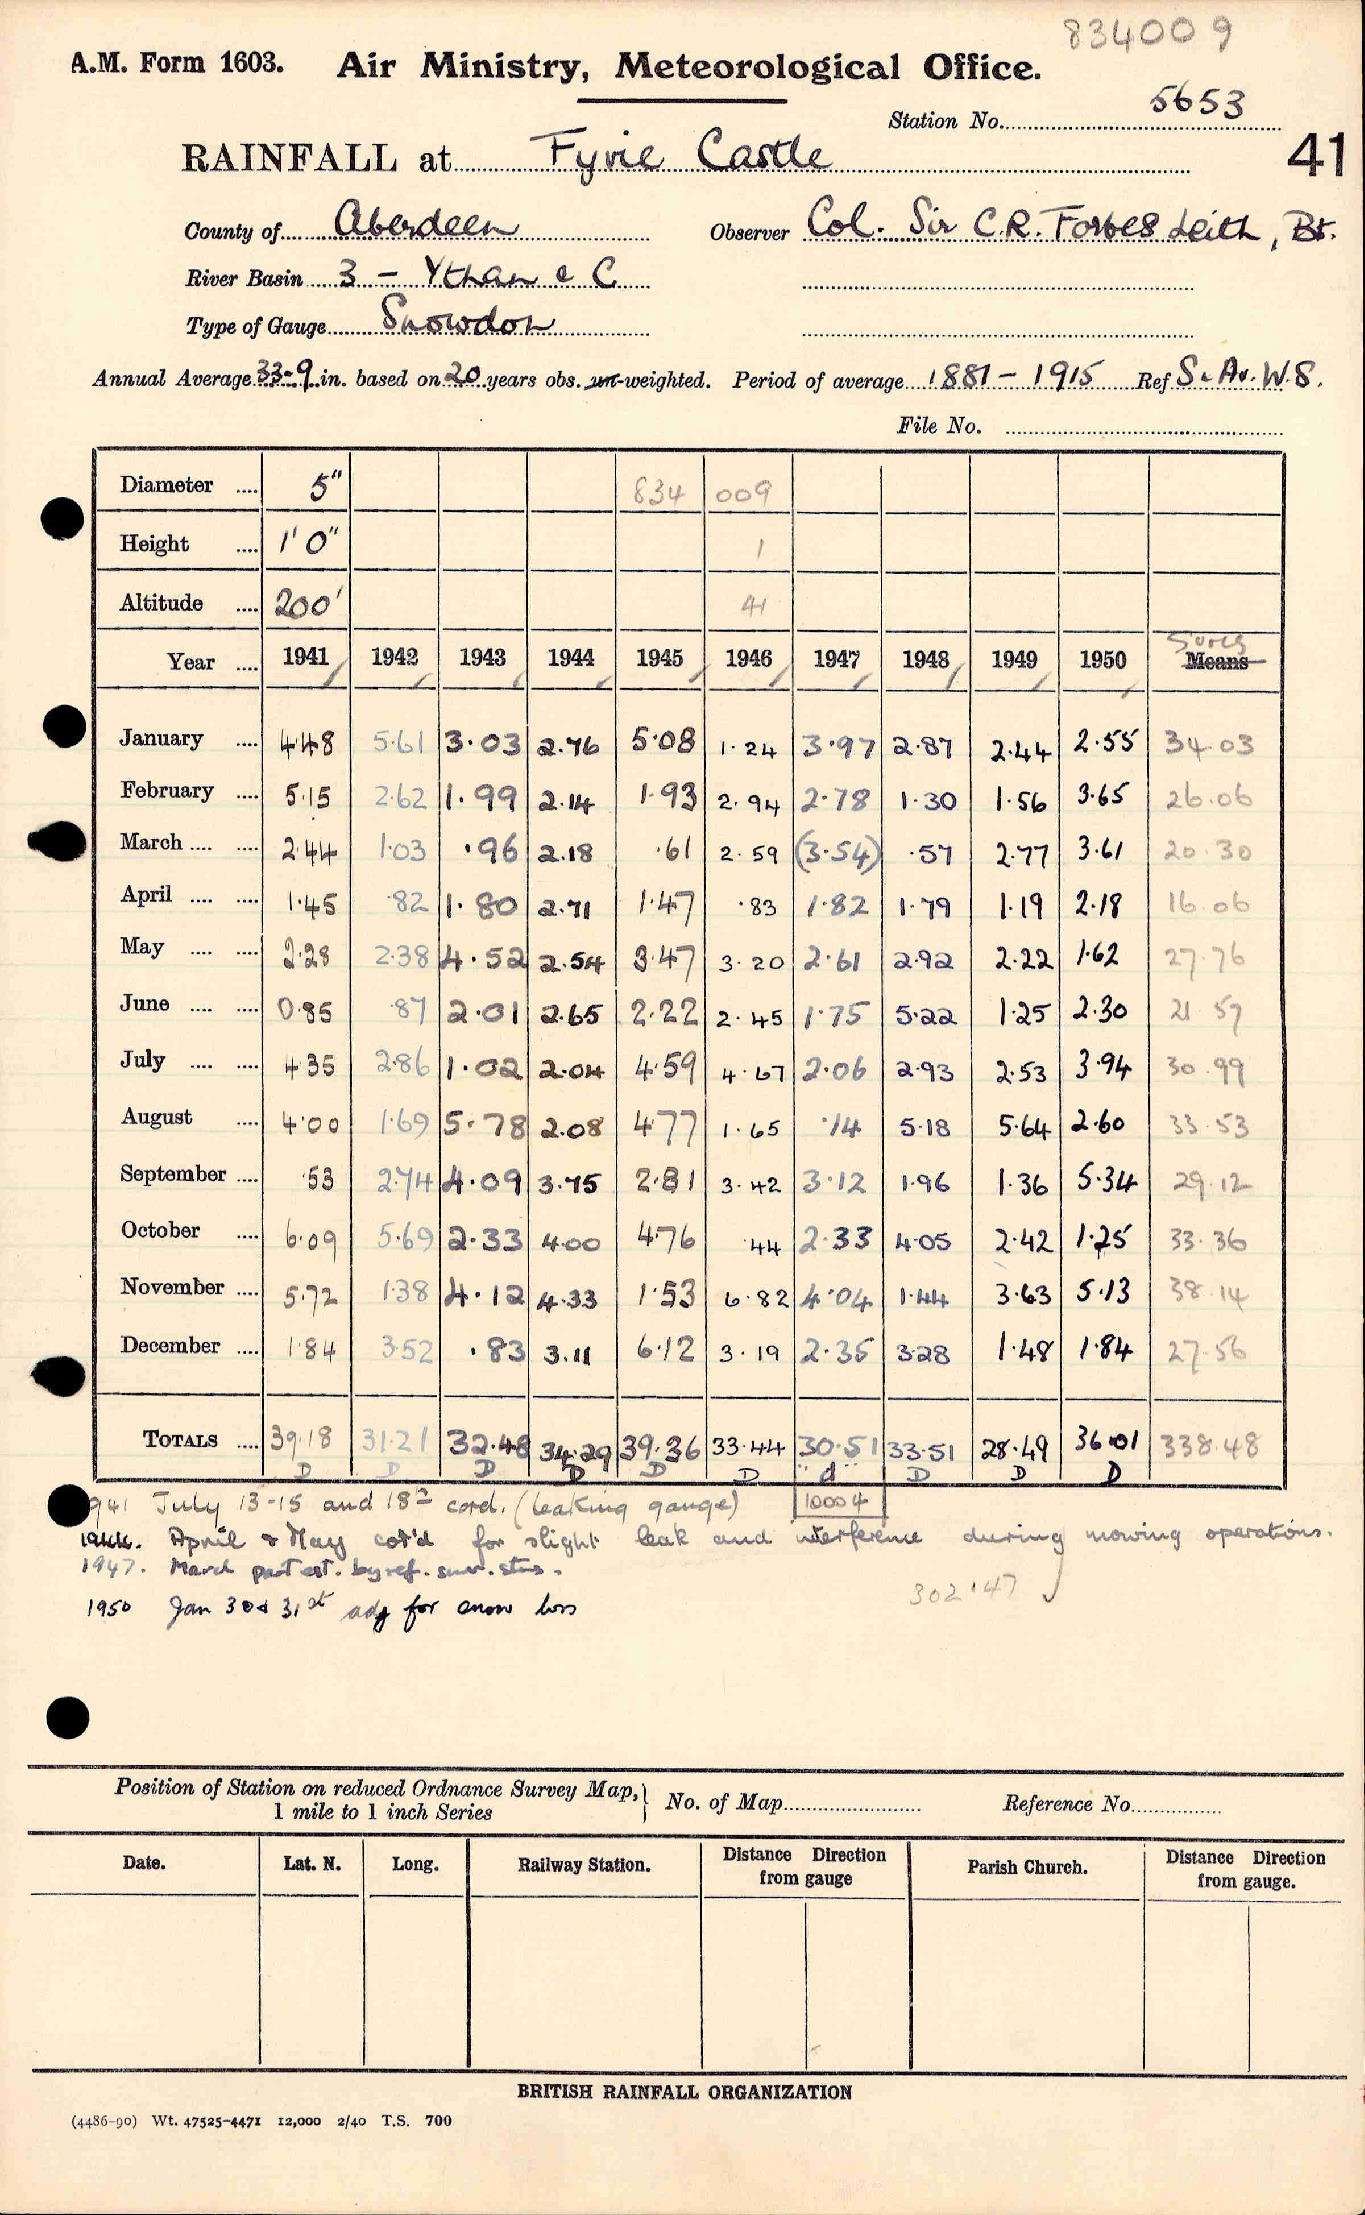 834009
A.M. Form 1603. Air Ministry, Meteorological Office.
Station No. 5653
RAINFALL at Fyvie Castle 41
County of Aberdeen Observer Col. Sir C.R. Forbes Leith, Bt.
River Basin 3 - Ythan & C
Type of Gauge Snowdon
Annual Average 33.9 in. based on 20 years obs. un-weighted. Period of average 1881-1915 Ref S. Av. W.S.
File No.
Diameter .... 5" 834 009
Height .... 1' 0" 1
Altitude .... 200' 41
Year .... 1941 1942 1943 1944 1945 1946 1947 1948 1949 1950 Means Sums
January .... 4.48 5.61 3.03 2.76 5.08 1.24 3.97 2.87 2.44 2.55 34.03
February .... 5.15 2.62 1.99 2.14 1.93 2.94 2.78 1.30 1.56 3.65 26.06
March .... .... 2.44 1.03 .96 2.18 .61 2.59 (3.54) .57 2.77 3.61 20.30
April .... .... 1.45 .82 1.80 2.71 1.47 .83 1.82 1.79 1.19 2.18 16.06
May .... .... 2.28 2.38 4.52 2.54 3.47 3.20 2.61 2.92 2.22 1.62 27.76
June .... .... 0.85 .87 2.01 2.65 2.22 2.45 1.75 5.22 1.25 2.30 21.57
July .... .... 4.35 2.86 1.02 2.04 4.59 4.67 2.06 2.93 2.53 3.94 30.99
August .... 4.00 1.69 5.78 2.08 4.77 1.65 .14 5.18 5.64 2.60 33.53
September .... .53 2.74 4.09 3.75 2.81 3.42 3.12 1.96 1.36 5.34 29.12
October .... 6.09 5.69 2.33 4.00 4.76 .44 2.33 4.05 2.42 1.25 33.36
November .... 5.72 1.38 4.12 4.33 1.53 6.82 4.04 1.44 3.63 5.13 38.14
December .... 1.84 3.52 .83 3.11 6.12 3.19 2.35 3.28 1.48 1.84 27.56
TOTALS .... 39.18 31.21 32.48 34.29 39.36 33.44 30.51 33.51 28.49 36.01 338.48
D D D D D D "d" D D D
1941 July 13-15 and 18th cord. (leaking gauge) 10004
1944. April & May cor'd for slight leak and interference during mowing operations.
1947. March part est. by ref. surr. stns.
302.47
1950 Jan 30 & 31st adj for snow loss
Position of Station on reduced Ordnance Survey Map, 1 mile to 1 inch Series No. of Map Reference No.
Date. Lat. N. Long. Railway Station. Distance Direction from gauge Parish Church. Distance Direction from gauge.
BRITISH RAINFALL ORGANIZATION
(4486-90) Wt. 47525-4471 12,000 2/40 T.S. 700